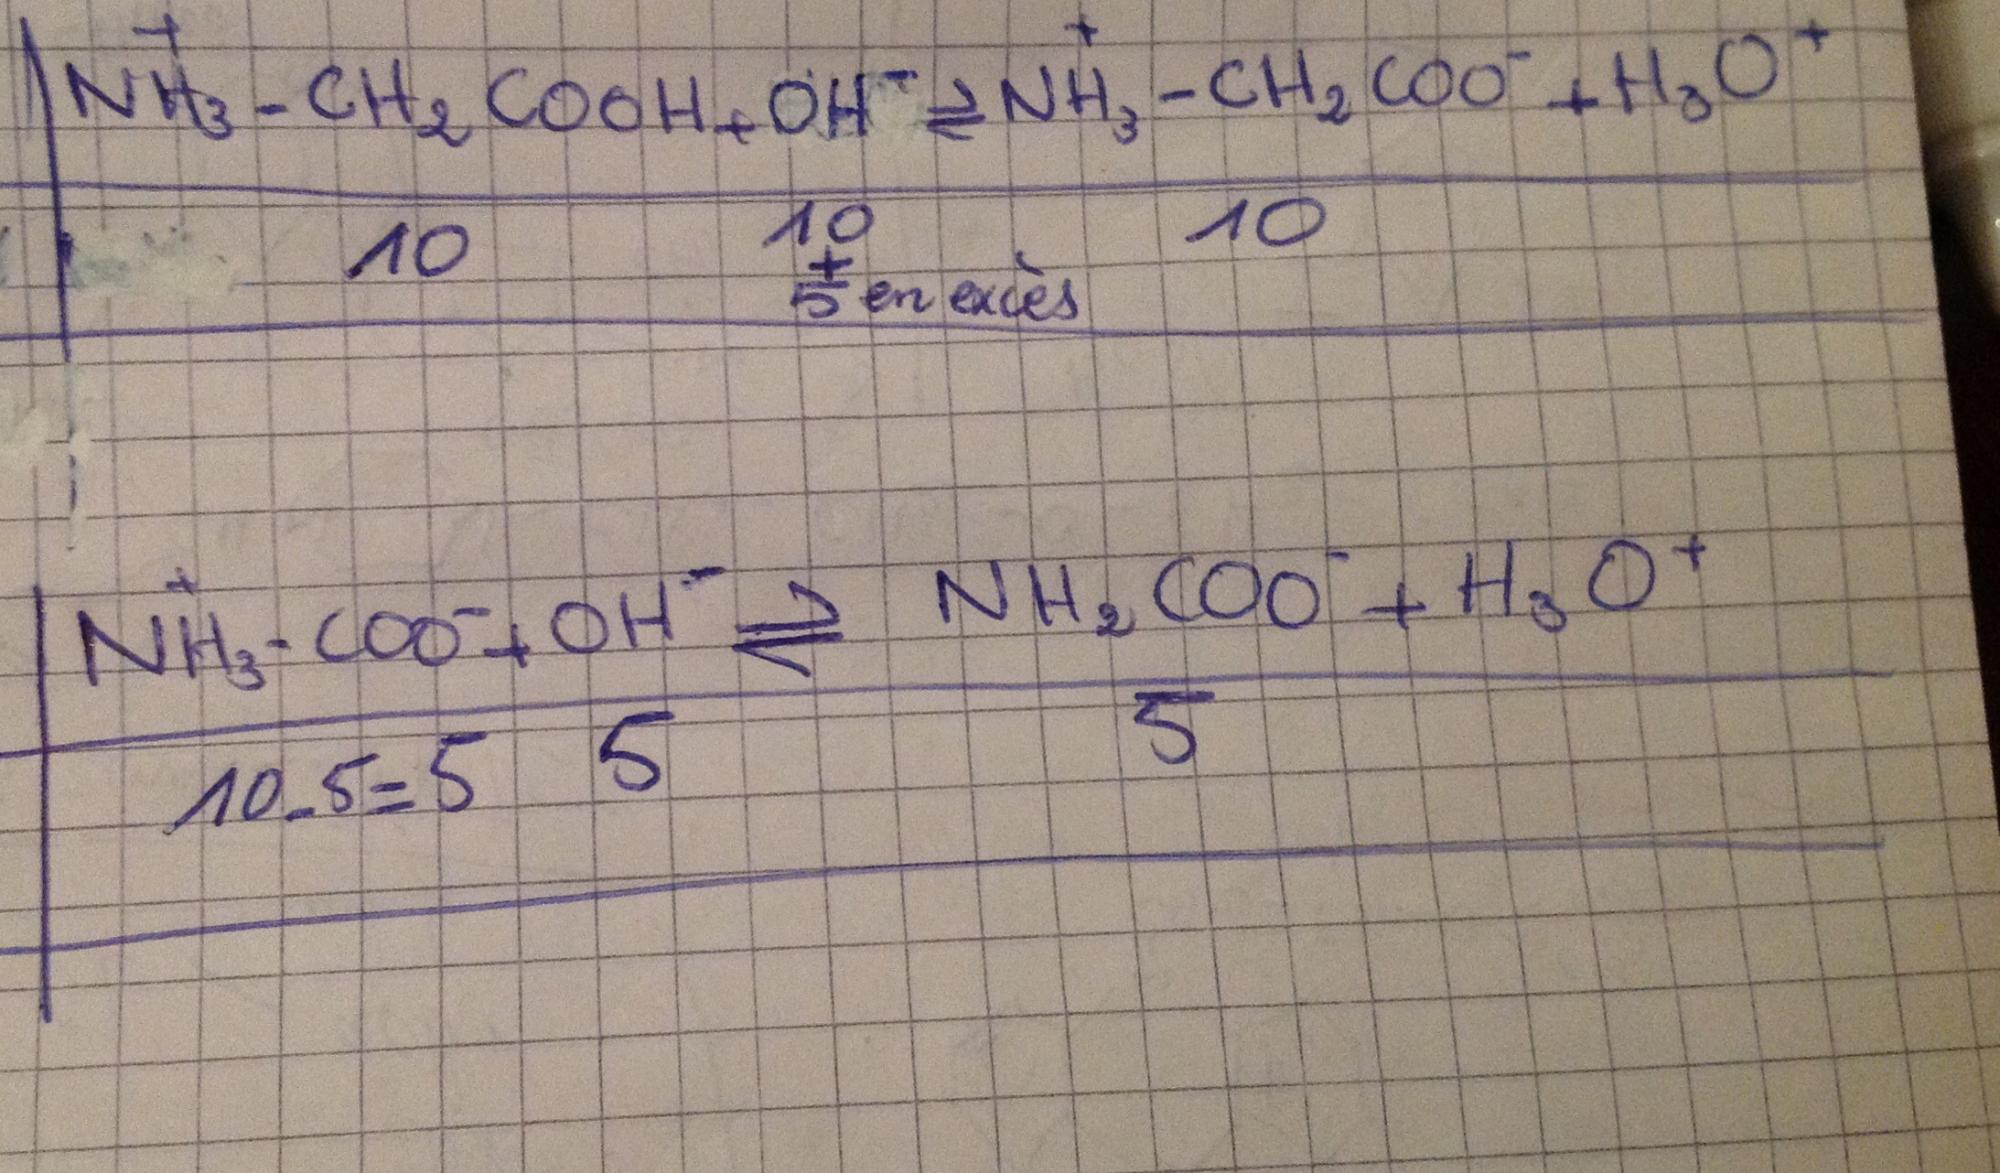 ⁺NH₃ - CH₂ COOH + OH⁻ ⇌ ⁺NH₃ - CH₂ COO⁻ + H₃O⁺
10 10 10
+
5 en excès
⁺NH₃ - COO⁻ + OH⁻ ⇌ NH₂ COO⁻ + H₃O⁺
10 - 5 = 5 5 5